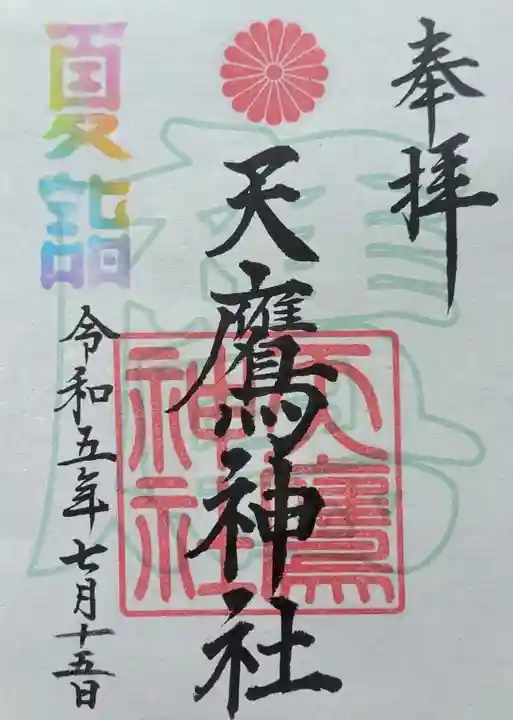 奉拝
天鷹神社
天鷹
神社
夏詣
令和五年七月十五日